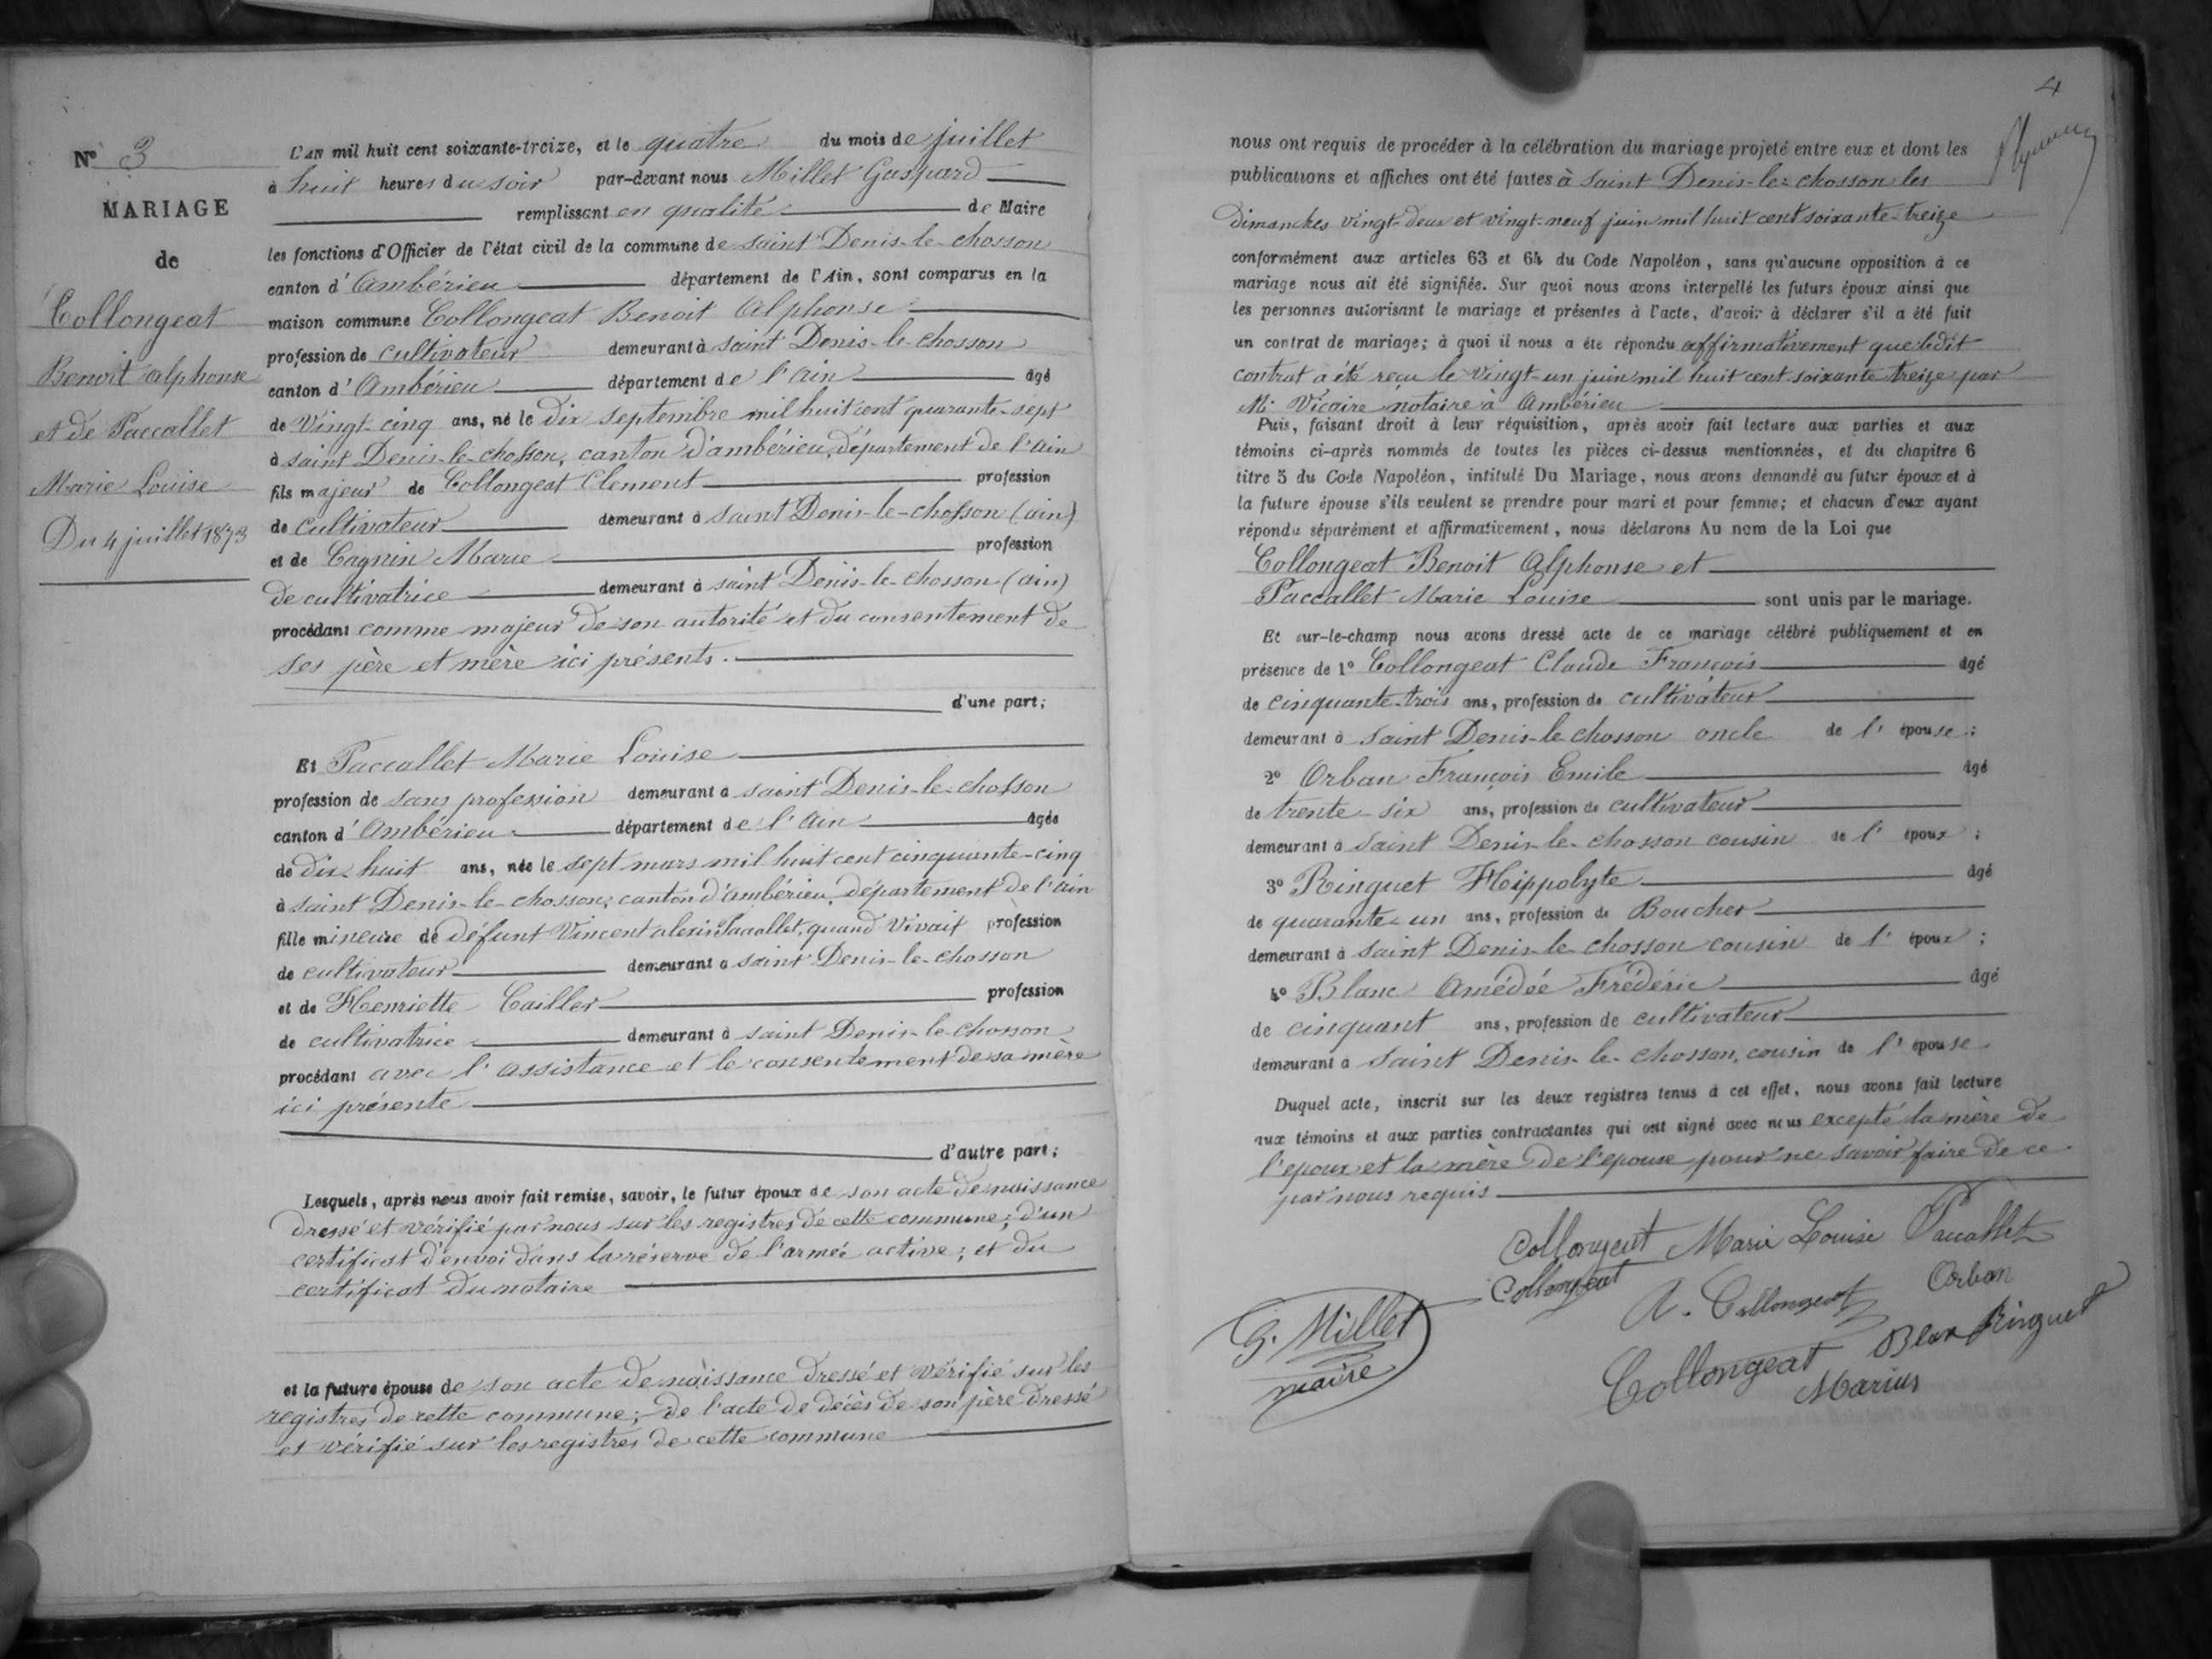 N° 3
MARIAGE
de
Collongeat
Benoit Alphonse
et de Paccallet
Marie Louise
Du 4 juillet 1873
L'AN mil huit cent soixante-treize, et le quatre du mois de juillet
à huit heures du soir par-devant nous Millet Gaspard
remplissant en qualité de Maire
les fonctions d'Officier de l'état civil de la commune de saint Denis-le-chosson
canton d'Ambérieu département de l'Ain, sont comparus en la
maison commune Collongeat Benoit Alphonse
profession de cultivateur demeurant à saint Denis-le-chosson
canton d'Ambérieu département de l'ain âgé
de Vingt-cinq ans, né le dix septembre mil huit cent quarante-sept
à saint Denis-le-chosson, canton d'ambérieu, département de l'ain
fils majeur de Collongeat Clement profession
de cultivateur demeurant à saint Denis-le-chosson (ain)
et de Cagnin Marie profession
de cultivatrice demeurant à saint Denis-le-chosson (ain)
procédant comme majeur de son autorité et du consentement de
ses père et mère ici présents.
d'une part;
Et Paccallet Marie Louise
profession de sans profession demeurant à saint Denis-le-chosson
canton d'Ambérieu département de l'ain âgée
de dix huit ans, née le sept mars mil huit cent cinquante-cinq
à saint Denis-le-chosson, canton d'ambérieu, département de l'ain
fille mineure de défunt Vincent alexis Pacallet, quand Vivait profession
de cultivateur demeurant à saint Denis-le-chosson
et de Henriette Cailler profession
de cultivatrice demeurant à saint Denis-le-chosson
procédant avec l'assistance et le consentement de sa mère
ici présente
d'autre part;
Lesquels, après nous avoir fait remise, savoir, le futur époux de son acte de naissance
dressé et vérifié par nous sur les registres de cette commune; d'un
certificat d'envoi dans la réserve de l'armée active; et du
certificat du notaire
et la future épouse de son acte de naissance dressé et vérifié sur les
registres de cette commune; de l'acte de décès de son père dressé
et vérifié sur les registres de cette commune
4
nous ont requis de procéder à la célébration du mariage projeté entre eux et dont les
publications et affiches ont été faites à saint Denis-le-chosson les
dimanches vingt-deux et vingt-neuf juin mil huit cent soixante-treize
conformément aux articles 63 et 64 du Code Napoléon, sans qu'aucune opposition à ce
mariage nous ait été signifiée. Sur quoi nous avons interpellé les futurs époux ainsi que
les personnes autorisant le mariage et présentes à l'acte, d'avoir à déclarer s'il a été fait
un contrat de mariage; à quoi il nous a été répondu affirmativement que ledit
contrat a été reçu le vingt-un juin mil huit cent soixante treize par
Me Vicaire notaire à Ambérieu
Puis, faisant droit à leur réquisition, après avoir fait lecture aux parties et aux
témoins ci-après nommés de toutes les pièces ci-dessus mentionnées, et du chapitre 6
titre 5 du Code Napoléon, intitulé Du Mariage, nous avons demandé au futur époux et à
la future épouse s'ils veulent se prendre pour mari et pour femme; et chacun d'eux ayant
répondu séparément et affirmativement, nous déclarons Au nom de la Loi que
Collongeat Benoit Alphonse et
Paccallet Marie Louise sont unis par le mariage.
Et sur-le-champ nous avons dressé acte de ce mariage célébré publiquement et en
présence de 1° Collongeat Claude François âgé
de cinquante-trois ans, profession de cultivateur
demeurant à saint Denis-le chosson oncle de l'épouse;
2° Orban François Emile âgé
de trente-six ans, profession de cultivateur
demeurant à saint Denis-le-chosson cousin de l'époux;
3° Ringuet Hippolyte âgé
de quarante-un ans, profession de Boucher
demeurant à saint Denis-le chosson cousin de l'époux;
4° Blanc Amédée Frédéric âgé
de cinquant ans, profession de cultivateur
demeurant à saint Denis-le-chosson, cousin de l'épouse
Duquel acte, inscrit sur les deux registres tenus à cet effet, nous avons fait lecture
aux témoins et aux parties contractantes qui ont signé avec nous excepté la mère de
l'epoux et la mère de l'epouse pour ne savoir faire de ce
par nous requis
Collongeat Marie Louise Paccallet
Collongeat
A. Collongeat Orban
G. Millet
maire
Collongeat Blanc Ringuet
Marius